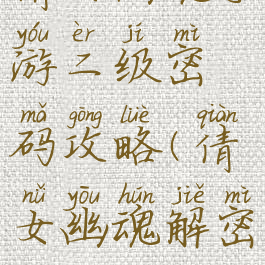 yóu èr jí mì
游二级密
mǎ gōng lüè qiàn
码攻略(倩
nǚ yōu hún jiě mì
女幽魂解密